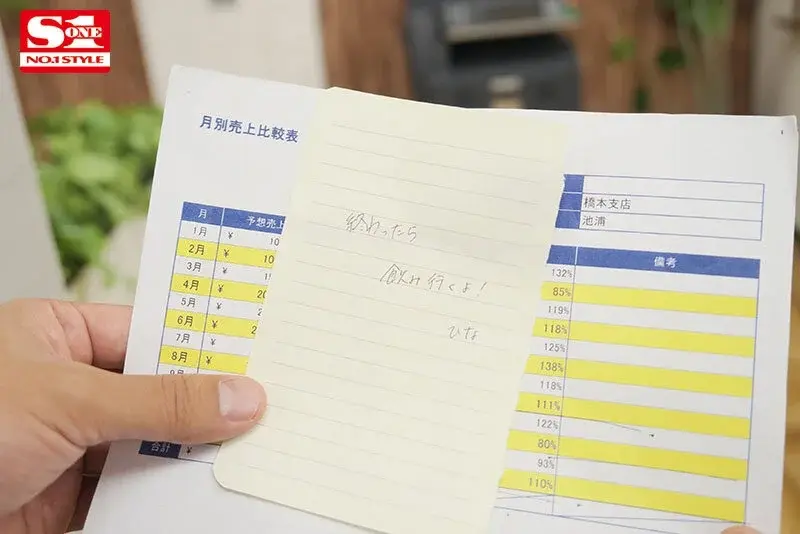 S1
ONE
NO.1 STYLE
月別売上比較表
橋本支店
池浦
月 予想売上
備考
1月 ¥ 10
132%
2月 ¥ 10
85%
3月 ¥ 15
119%
4月 ¥ 20
118%
5月 ¥
125%
6月 ¥ 2
138%
7月 ¥
118%
8月 ¥
111%
122%
80%
93%
110%
合計 ¥
終わったら
飲み行くよ!
ひな